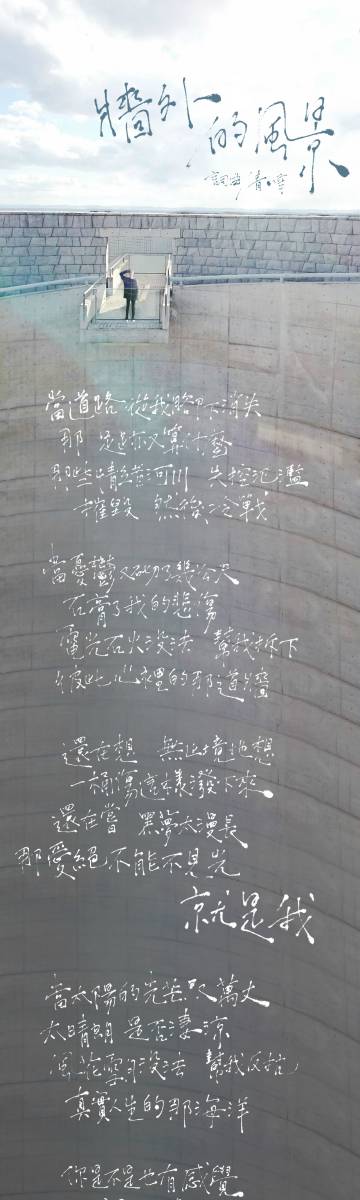 牆外的風景
詞曲 青寧
當道路 從我腳下消失
那 足跡又算什麼
那些情緒河川 失控氾濫
摧毀 然後冷戰
當憂鬱又砌了幾公尺
石膏了我的悲傷
電光石火沒法 幫我拆下
彼此心裡的那道牆
還在想 無止境地想
一桶傷這樣潑下來
還在嘗 黑夢太漫長
那愛絕不能不見光
就是我
當太陽的光芒 又萬丈
太晴朗 是否淒涼
風花雪月沒法 幫我反抗
真實人生的那海洋
你是不是也有感覺